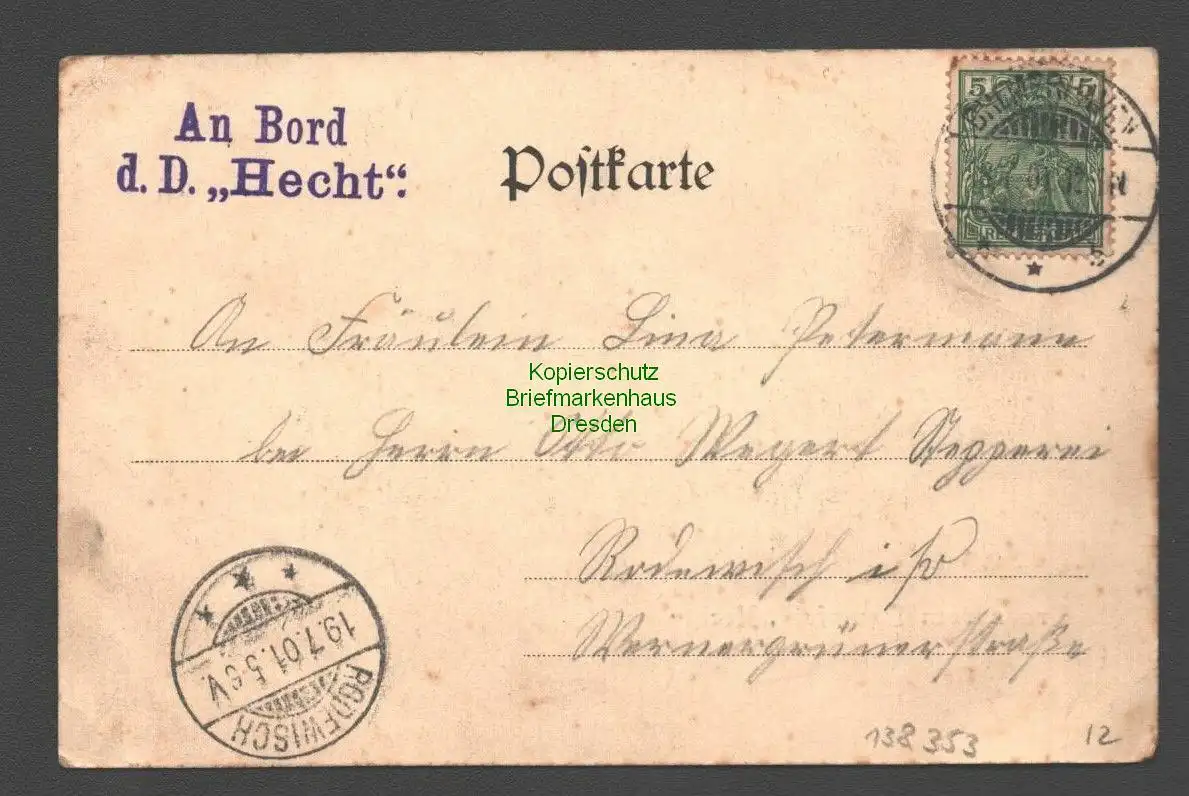 An Bord
d. D. „Hecht“.
Postkarte
5 5
REICHSPOST
An Fräulein Lina Petermann
Kopierschutz
Briefmarkenhaus
Dresden
bei Herrn Otto Wegert Stepperei
Rodewisch i/V
Wernergrünerstraße
19.7.01.5-6V.
RODEWISCH
138353
12